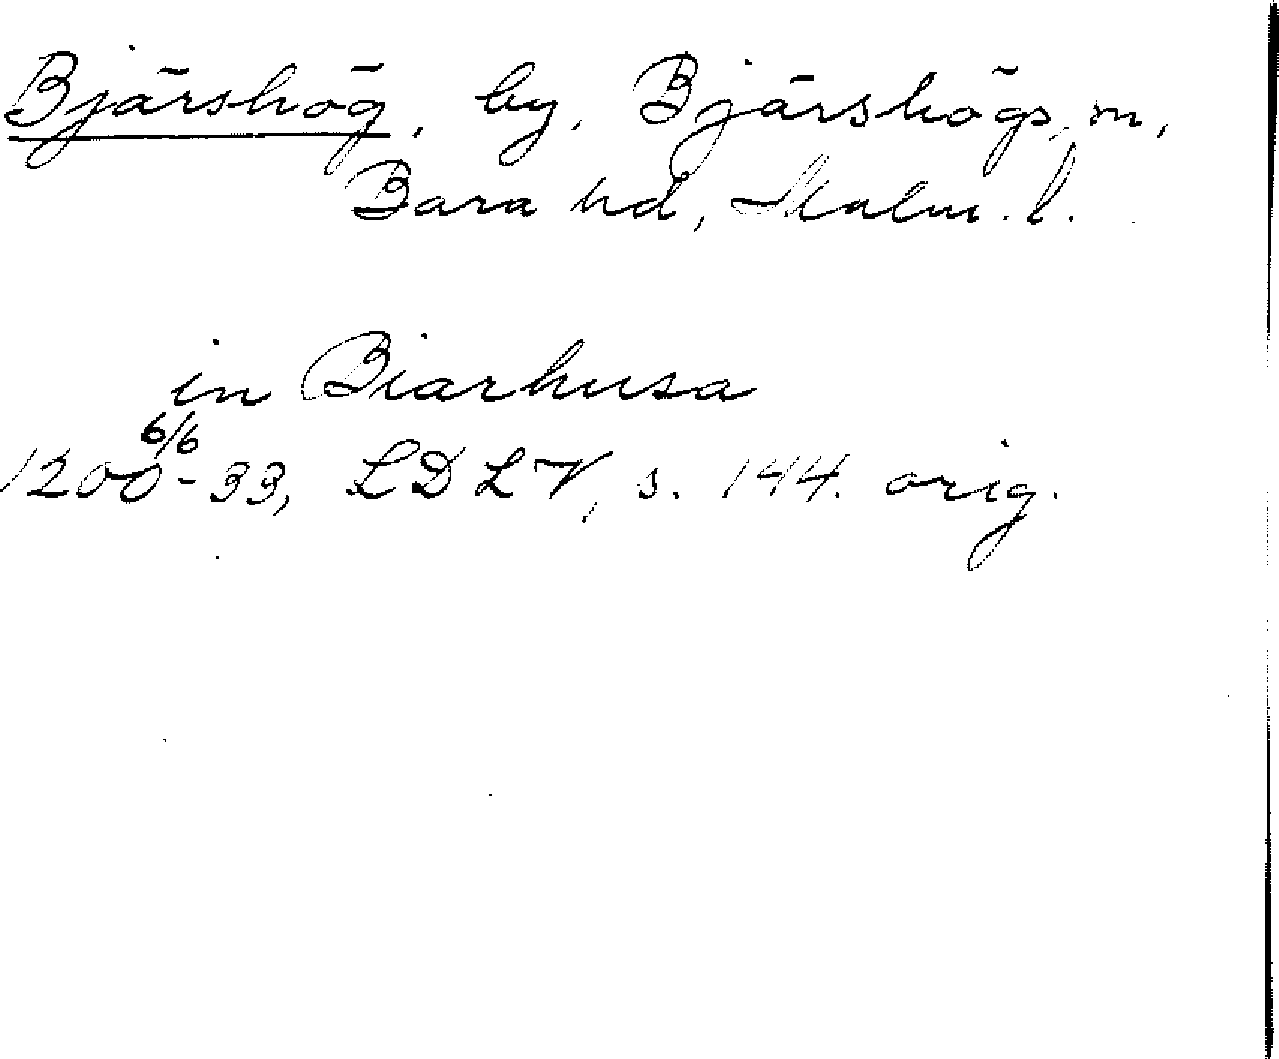 Bjärshög, by, Bjärshögs, sn,
Bara hd, Malm. l.
in Biarhusa
6/6
1200-33, LDLV, s. 144. orig.